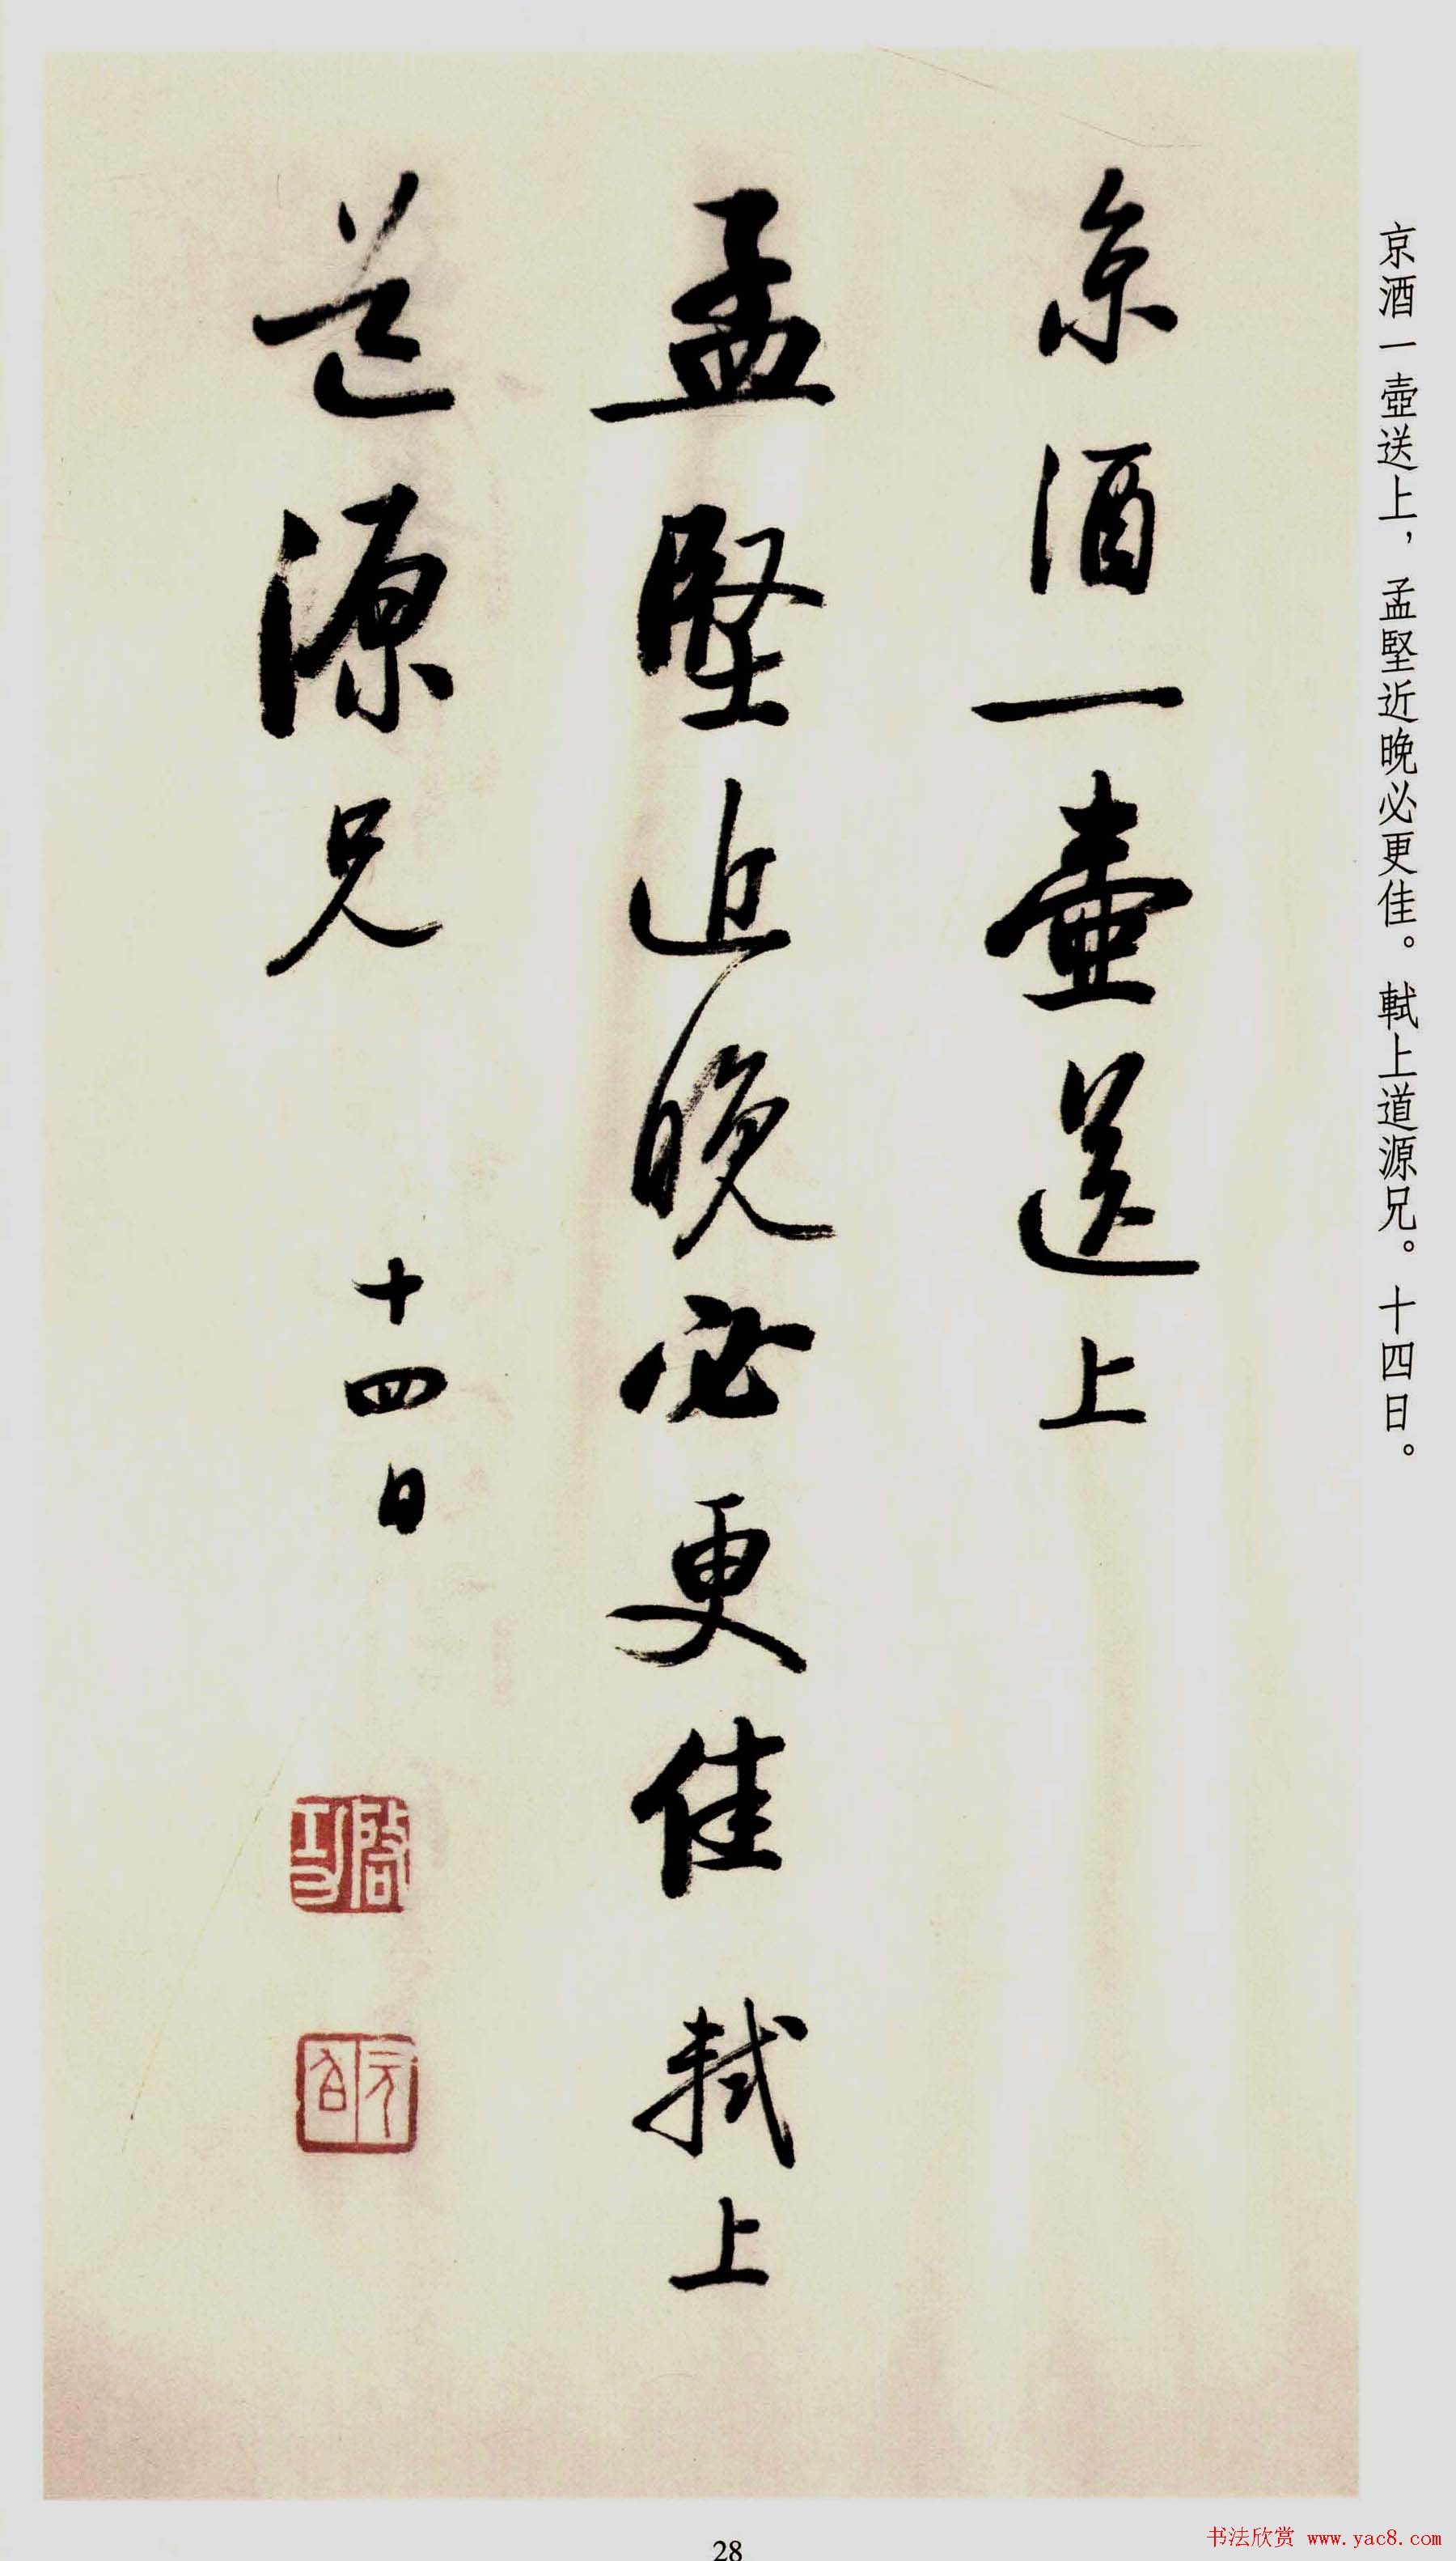 京酒一壺送上，孟堅近晚必更佳。軾上道源兄。十四日。
京酒一壺送上
孟堅近晚必更佳 軾上
道源兄 十四日
啟功
元白
28
书法欣赏 www.yac8.com